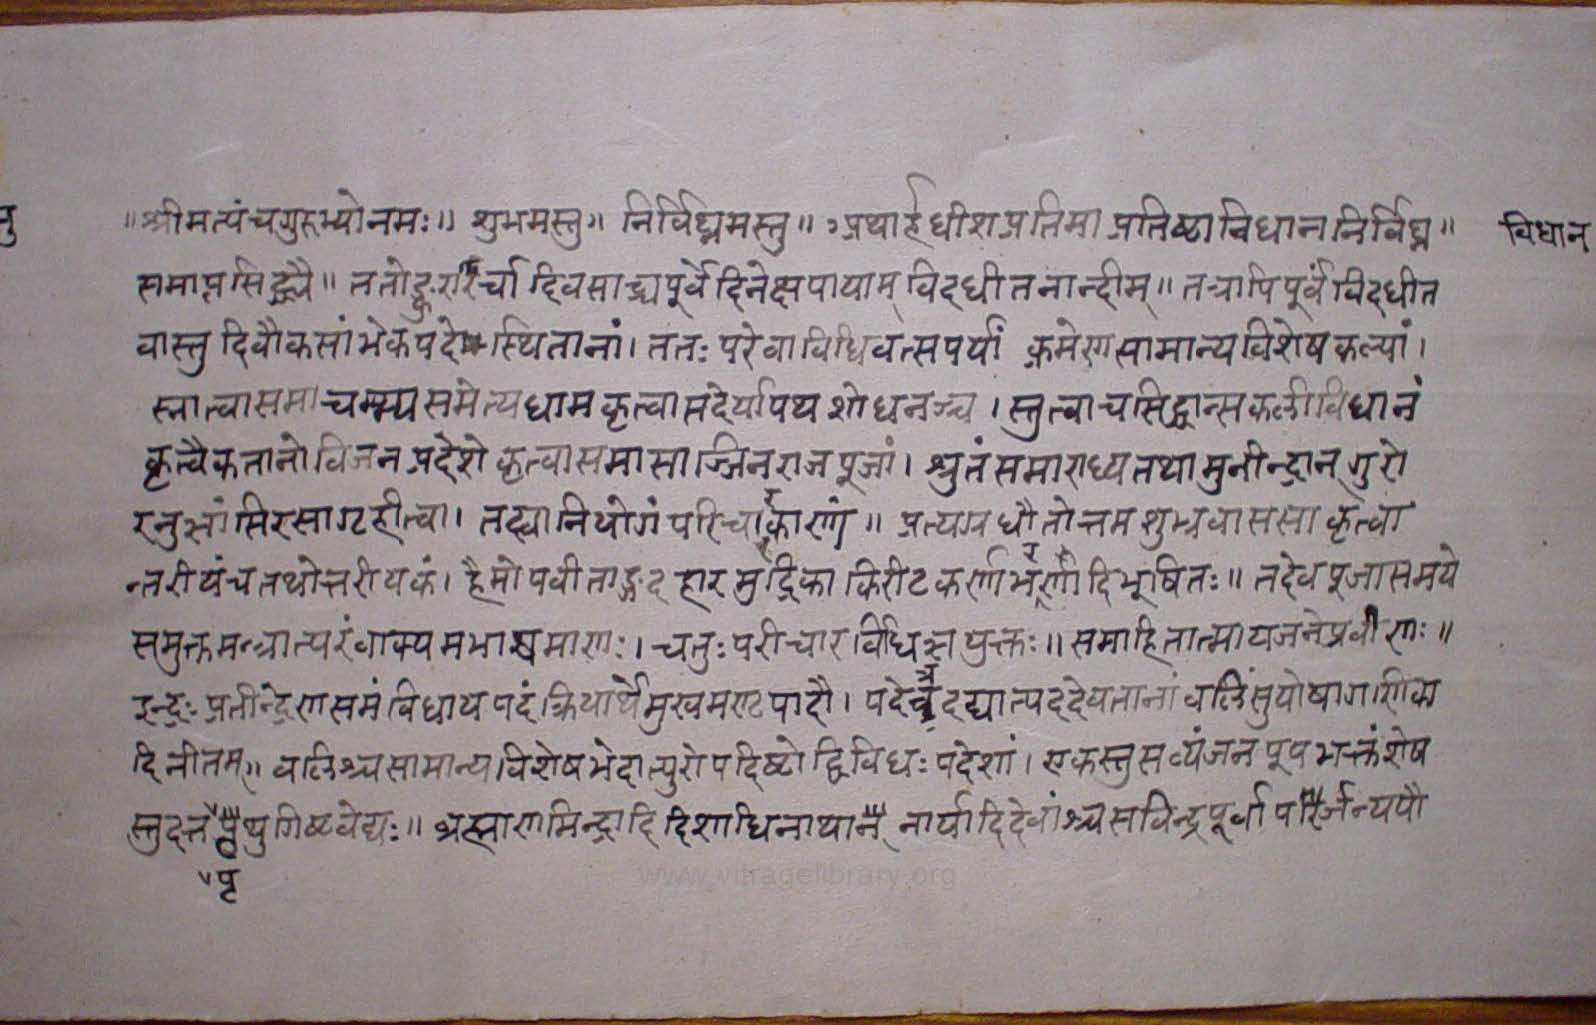 ॥ श्रीमत्पंचगुरुभ्योनमः॥ शुभमस्तु॥ निर्विघ्नमस्तु॥ अथार्हधीशप्रतिमाप्रतिष्ठाविधाननिर्विघ्न॥ विधान
समाप्तसिद्ध्यै॥ दिवसाच्चपूर्वेदिनेक्षपायाम् विदधीतनान्दीम्॥ तत्रापिपूर्वंविदधीत
वास्तुदिवौकसांभेकपदे स्थितानां। ततः परेवाविधिवत्सपर्यां क्रमेणसामान्यविशेषकल्पां।
स्नात्वासमाचम्यसमेत्यधामकृत्वासदेर्यापथशोधनञ्च। स्तुत्वाचसिद्धान्सकलीविधानं
कृत्वैकतानोविजनप्रदेशेकृत्वासमासाज्जिनराजपूजां। श्रुतंसमाराध्यतथामुनीन्द्रान्गुरो
रनुज्ञांसिरसागृहीत्वा। परिचारकाणां॥ प्रत्यग्रधौतोत्तमशुभ्रवाससाकृत्वा
न्तरीयंचतथोत्तरीयकं। हैमोपवीताङ्गदहारमुद्रिकाकिरीटकर्णाभर्णादिभूषितः॥ तदेवपूजासमये
समुक्तमन्त्रात्परंवाक्यमभाषमाणः। चतुःपरीचारविधिज्ञयुक्तः॥ समाहितात्मायजनेप्रवीणः॥
इन्द्रः प्रतीन्द्रेणसमंविधाय पदंक्रियार्थेमुखमण्टपादौ। दद्यात्पददेवतानांवलिंसुयोषागणिका
दिनीतम्॥ वलिश्चसामान्यविशेषभेदात्पुरोपदिष्टोद्विविधः पदेशां। एकस्तुसव्यंजनपूपभक्तंशेष
वेद्यः॥ दिशाधिनाथानै नार्यादिदेवांश्चसविन्द्रपूर्वा
पृ
www.vitragelibrary.org